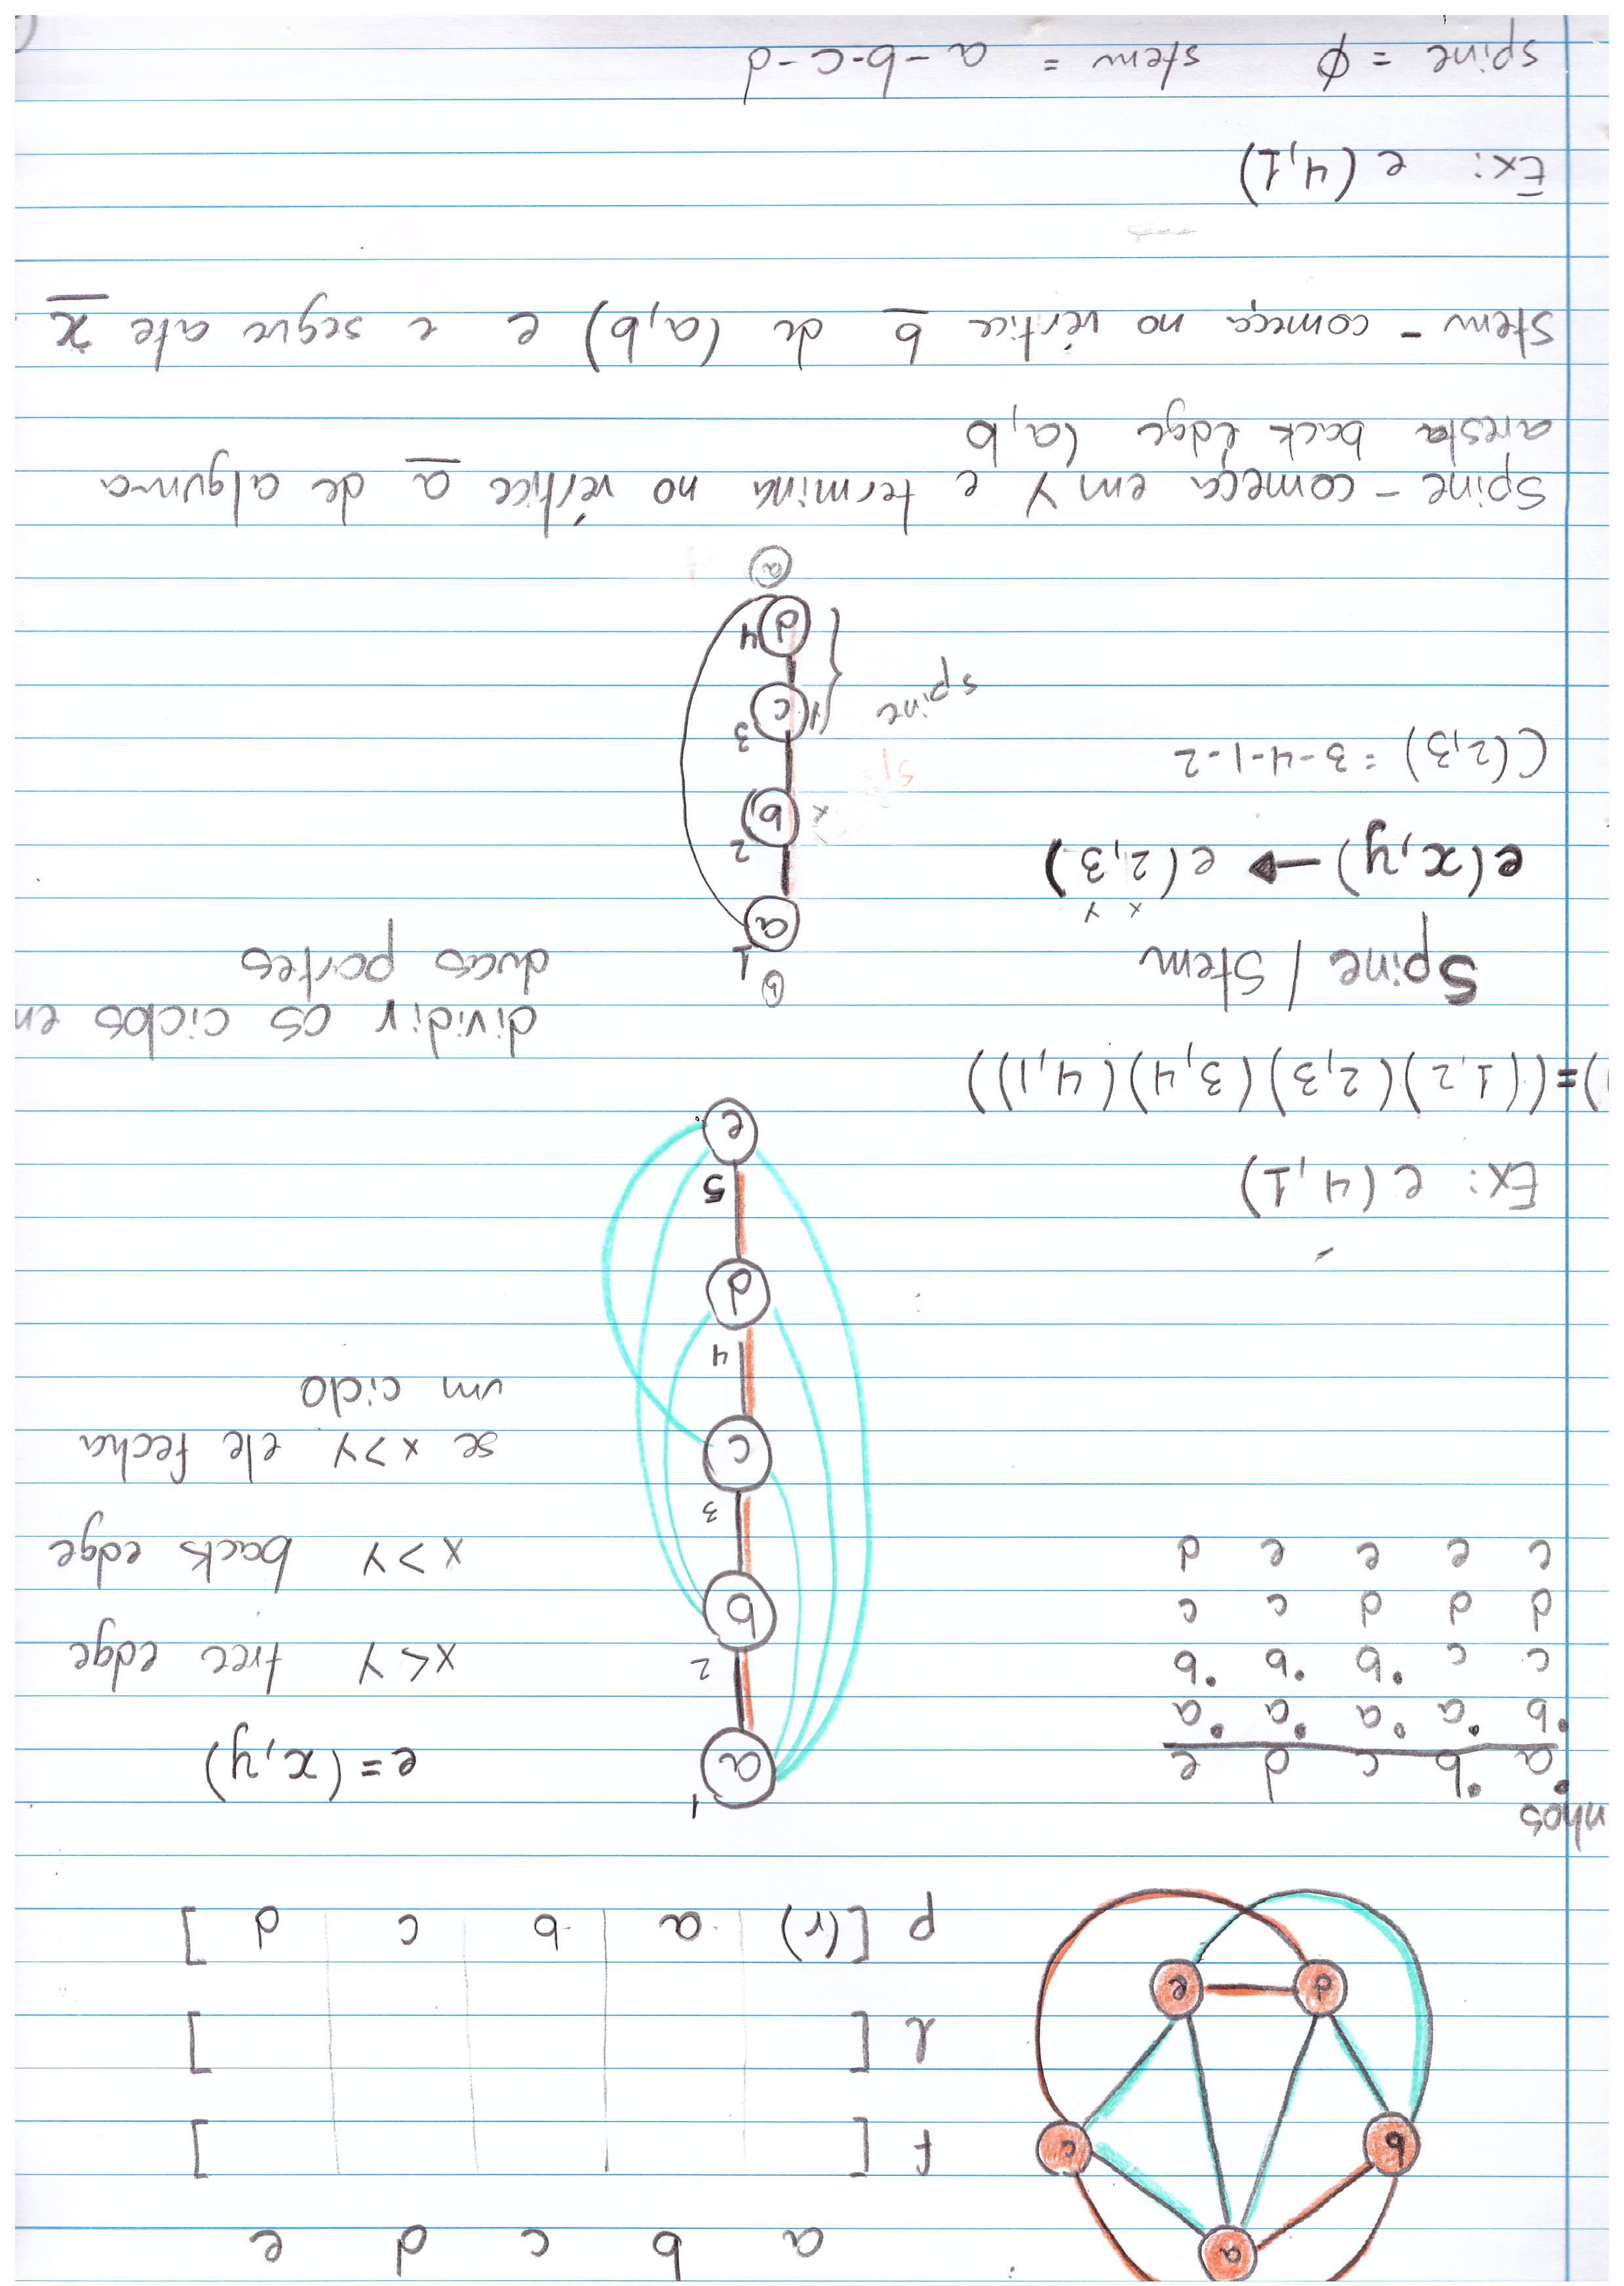 a
b
c
d
e
a b c d e
f [ ]
l [ ]
p [(r) a b c d ]
nhos
a b c d e
b a a a a
c c b b b
d d d c c
e e e e d
a 1
2
b
3
c
4
d
5
e
e = (x,y)
x < y tree edge
x > y back edge
se x > y ele fecha
um ciclo
Ex: e (4,1)
)=((1,2)(2,3)(3,4)(4,1))
dividir os ciclos em
duas partes
Spine / Stem
x y
e(x,y) → e(2,3)
C(2,3) = 3-4-1-2
b
a 1
x b 2
y c 3
spine
d 4
a
spine - começa em y e termina no vértice a de alguma
aresta back edge (a,b
stem - começa no vértice b de (a,b) e e segue ate x
Ex: e (4,1)
spine = ∅ stem = a-b-c-d